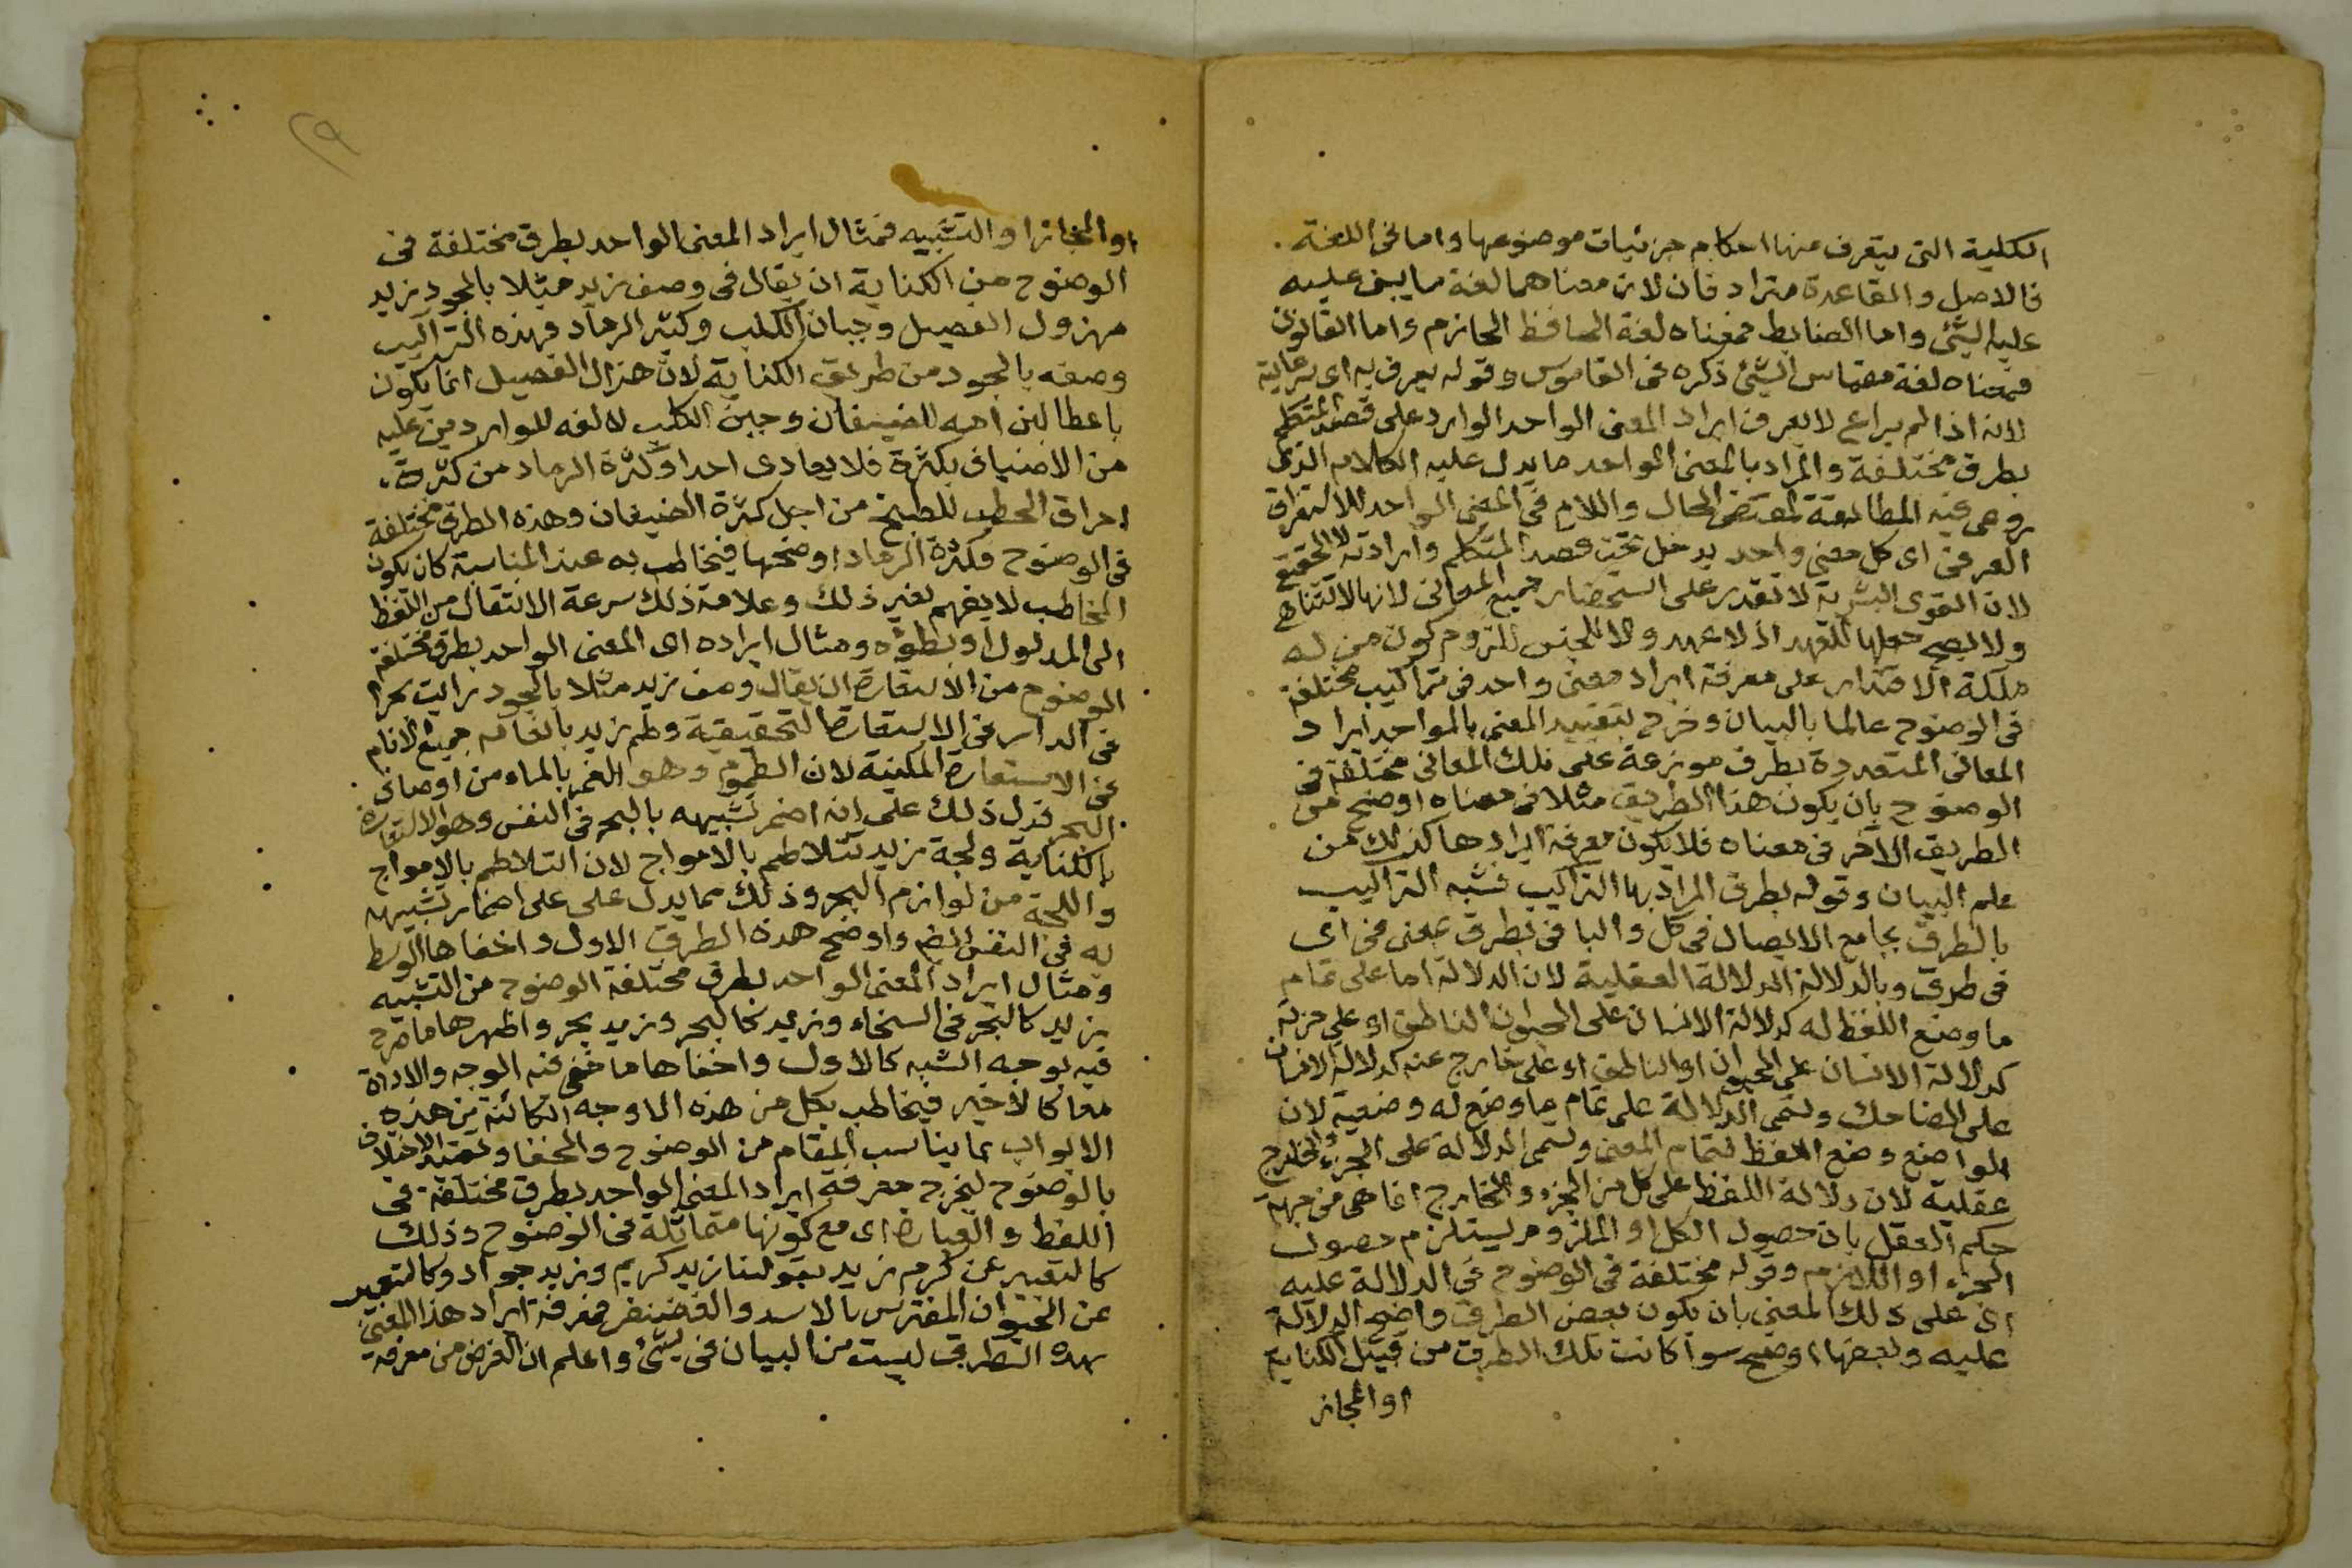 الكلية التى يتعرف منها احكام جزئيات موضوعها واما فى اللغة
فالاصل والقاعدة مترادفان لان معناهما لغة ما يبنى عليه
عليه الشئ واما الضابط فمعناه لغة الحافظ الحازم واما القانون
فمعناه لغة مقياس الشئ ذكره فى القاموس وقوله يعرف به اى برعايته
لانه اذا لم يراع لا يعرف ايراد المعنى الواحد الوارد على قصد المتكلم
بطرق مختلفة والمراد بالمعنى الواحد ما يدل عليه الكلام الذى
روعى فيه المطابقة لمقتضى الحال واللام فى المعنى الواحد للاستغراق
العرفى اى كل معنى واحد يدخل تحت قصد المتكلم وارادته لا الحقيقى
لان القوى البشرية لا تقدر على استحضار جميع المعانى لانها لا تتناهى
ولا يصح جعلها للعهد اذ لا عهد ولا للجنس للزوم كون من له
ملكة الاقتدار على معرفة ايراد معنى واحد فى تراكيب مختلفة
فى الوضوح عالما بالبيان وخرج بتقييد المعنى بالواحد ايراد
المعانى المتعددة بطرق موزعة على تلك المعانى مختلفة فى
الوضوح بان يكون هذا الطريق مثلا فى معناه اوضح من
الطريق الاخر فى معناه فلا يكون معرفة ايرادها كذلك من
علم البيان وقوله بطرق المراد بها التراكيب فشبه التراكيب
بالطرق بجامع الايصال فى كل والبا فى بطرق بمعنى فى اى
فى طرق وبالدلالة الدلالة العقلية لان الدلالة اما على تمام
ما وضع اللفظ له كدلالة الانسان على الحيوان الناطق او على جزئه
كدلالة الانسان على الحيوان او الناطق او على خارج عنه كدلالة الانسان
على الضاحك وتسمى الدلالة على تمام ما وضع له وضعية لان
الواضع وضع اللفظ لتمام المعنى وتسمى الدلالة على الجزء والخارج
عقلية لان دلالة اللفظ على كل من الجزء والخارج انما هى من جهة
حكم العقل بان حصول الكل او الملزوم يستلزم حصول
الجزء او اللازم وقوله مختلفة فى الوضوح فى الدلالة عليه
اى على ذلك المعنى بان يكون بعض الطرق واضح الدلالة
عليه وبعضها اوضح سوا كانت تلك الطرق من قبيل الكناية
او المجاز
او المجاز او التشبيه فمثال ايراد المعنى الواحد بطرق مختلفة فى
الوضوح من الكناية ان يقال فى وصف زيد مثلا بالجود زيد
مهزول الفصيل وجبان الكلب وكثير الرماد فهذه التراكيب
وصفه بالجود من طريق الكناية لان هزال الفصيل انما يكون
باعطا لبن امه للضيفان وجبن الكلب لالفه للوارد من عليه
من الاضياف بكثرة فلا يعادى احدا وكثرة الرماد من كثرة
احراق الحطب للطبخ من اجل كثرة الضيفان وهذه الطرق مختلفة
فى الوضوح فكثرة الرماد اوضحها فيخاطب به عند المناسبة كان يكون
المخاطب لا يفهم بغير ذلك وعلامة ذلك سرعة الانتقال من اللفظ
الى المدلول او بطؤه ومثال ايراده اى المعنى الواحد بطرق مختلفة
الوضوح من الاستعارة ان يقال وصف زيد مثلا بالجود رايت بحرا
فى الدار فى الاستعارة التحقيقية وطم زيد بانعامه جميع الانام
فى الاستعارة المكنية لان الطموم وهو الغمر بالماء من اوصاف
البحر فدل ذلك على انه اضمر تشبيهه بالبحر فى النفس وهو الاستعارة
بالكناية ولجة زيد تتلاطم بالامواج لان التلاطم بالامواج
واللجة من لوازم البحر وذلك مما يدل على على اضمار تشبيهه
به فى النفس ايضا واوضح هذه الطرق الاول واخفاها الوسط
ومثال ايراد المعنى الواحد بطرق مختلفة الوضوح من التشبيه
زيد كالبحر فى السخاء وزيد كالبحر وزيد بحر واظهرها ما صرح
فيه بوجه الشبه كالاول واخفاها ما خفى فيه الوجه والاداة
معا كالاخير فيخاطب بكل من هذه الاوجه الكائنة من هذه
الابواب بما يناسب المقام من الوضوح والخفا وتقييد الاختلاف
بالوضوح ليخرج معرفة ايراد المعنى الواحد بطرق مختلفة فى
اللفظ والعبارة اى مع كونها متماثلة فى الوضوح وذلك
كالتعبير عن كرم زيد بقولنا زيد كريم وزيد جواد وكالتعبير
عن الحيوان المفترس بالاسد والغضنفر فمعرفة ايراد هذا المعنى
بهذه الطرق ليست من البيان فى شئ واعلم ان الغرض من معرفة